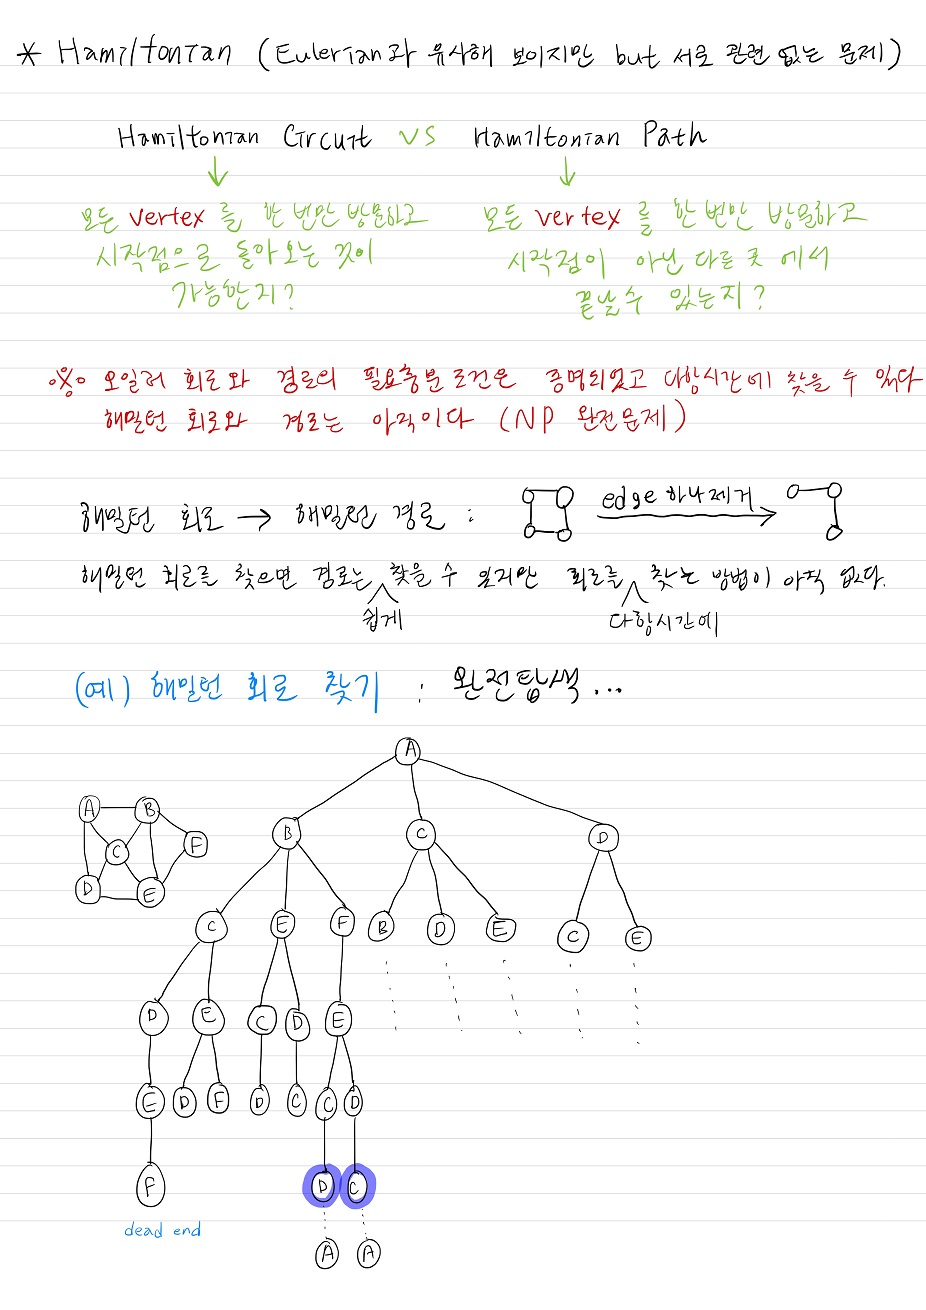 * Hamiltonian (Eulerian과 유사해 보이지만 but 서로 관련 없는 문제)
Hamiltonian Circuit VS Hamiltonian Path
모든 vertex를 한 번만 방문하고
시작점으로 돌아오는 것이
가능한지?
모든 vertex를 한 번만 방문하고
시작점이 아닌 다른 곳에서
끝날 수 있는지?
※ 오일러 회로와 경로의 필요충분조건은 증명되었고 다항시간에 찾을 수 있다
해밀턴 회로와 경로는 아직이다 (NP 완전문제)
해밀턴 회로 → 해밀턴 경로 :
edge 하나 제거
해밀턴 회로를 찾으면 경로는 찾을 수 있지만 회로를 찾는 방법이 아직 없다.
쉽게
다항시간에
(예) 해밀턴 회로 찾기 : 완전탐색...
A
A B
B C D
C F
D E
C E F B D E C E
D E C D E
E D F D C C D
F D C
dead end
A A